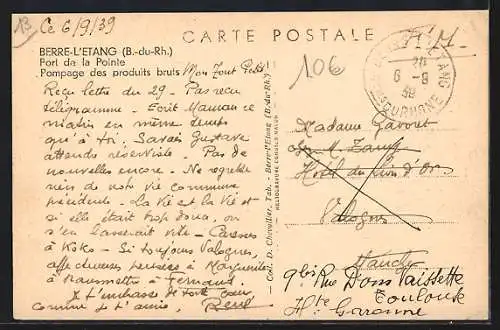 13
Ce 6/9/39
CARTE POSTALE
F.M.
BERRE-L'ETANG (B.-du-Rh.)
Port de la Pointe
Pompage des produits bruts
Mon Tout Petit
106
BERRE-L'ETANG
20
6 - 9
39
B. DU RHONE
Reçu lettre du 29 - Pas reçu
télégramme - Ecrit Maman ce
matin en même temps
qu'à toi. Savais Gustave
attends réserviste. Pas de
nouvelles encore - Ne regrette
rien de notre vie commune
précédente. La Vie est la Vie et
si elle était trop douce, on
s'en lasserait vite - Caresses
à Koko - Si toujours Valognes,
affectueuses pensées à Marguerite
à Fernand.
X t'embrasse de tout cœur
comme je t'aime, René
Coll. D. Chevallier, Tab. - Berre-l'Etang (B.-du-Rh.)
Madame Gavoret
Hôtel du Lion d'Or
Valognes
Manche
9 bis Rue Dom Vaissette
Toulouse
Hte Garonne